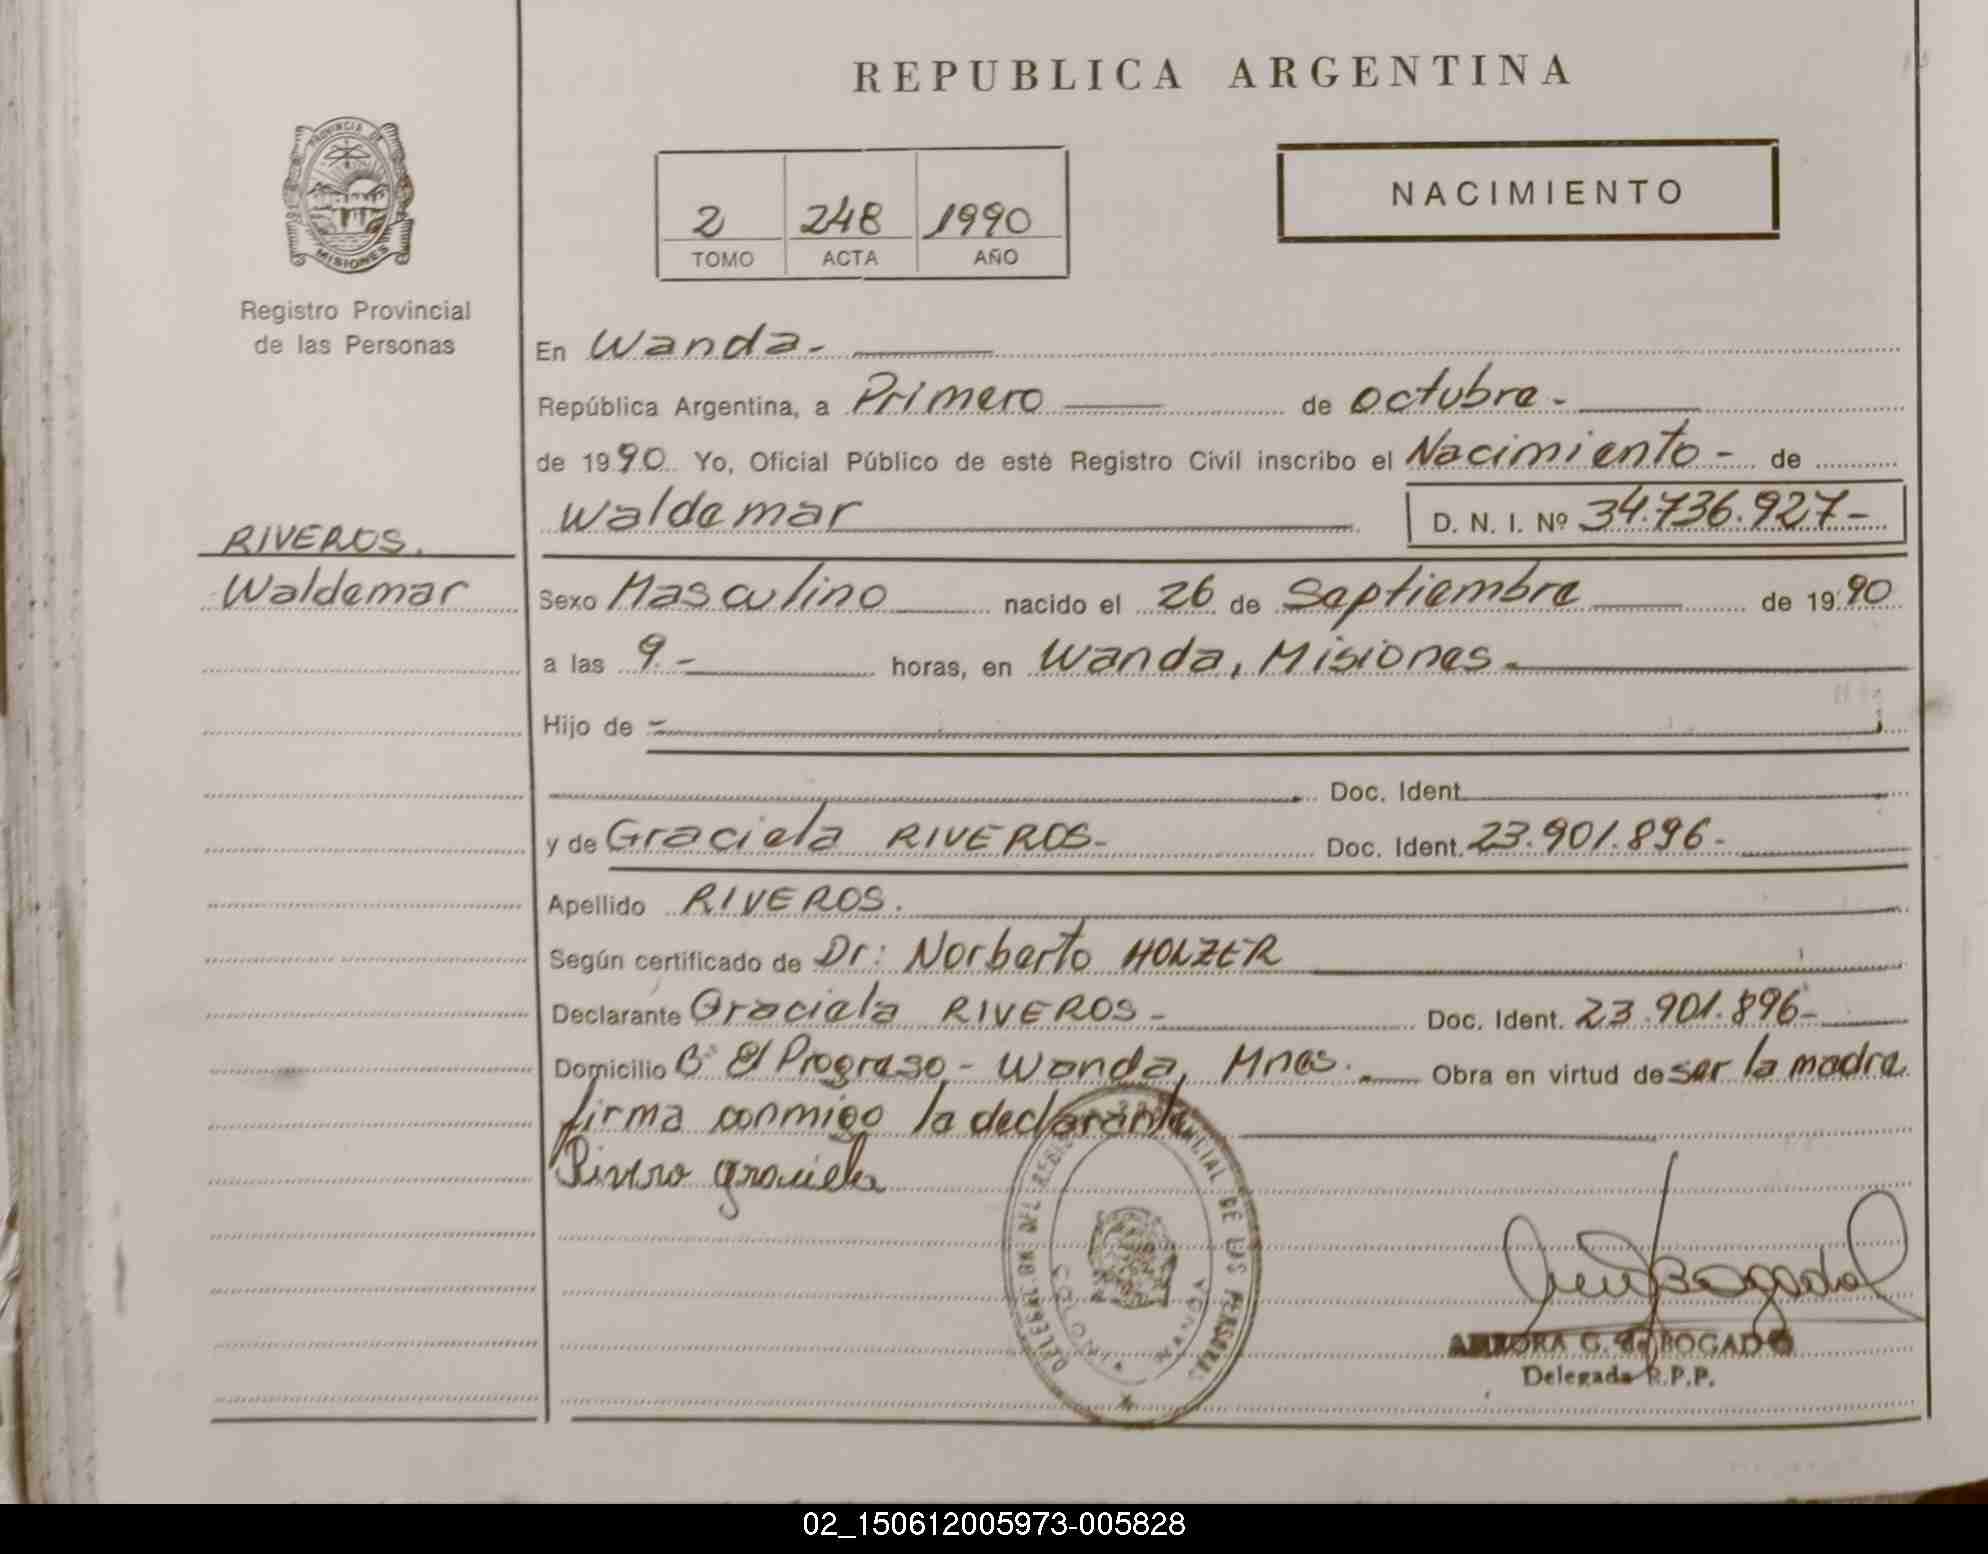 REPUBLICA ARGENTINA
PROVINCIA DE
MISIONES
Registro Provincial
de las Personas
2 248 1990
TOMO ACTA AÑO
NACIMIENTO
En Wanda.-
República Argentina, a Primero de octubre.-
de 1990 Yo, Oficial Público de este Registro Civil inscribo el Nacimiento - de
Waldemar D. N. I. Nº 34.736.927-
RIVEROS.
Waldemar
Sexo Masculino nacido el 26 de Septiembre de 1990
a las 9.- horas, en Wanda, Misiones.-
Hijo de -
Doc. Ident.
y de Graciela RIVEROS- Doc. Ident. 23.901.896-
Apellido RIVEROS.
Según certificado de Dr: Norberto HOLZER
Declarante Graciela RIVEROS- Doc. Ident. 23.901.896-
Domicilio Bº El Progreso - Wanda, Mnes. Obra en virtud de ser la madre
firma conmigo la declarante
Rivero graciela
DELEGACION DEL REGISTRO PROVINCIAL DE LAS PERSONAS
COLONIA WANDA
AURORA G. de BOGADO
Delegada R.P.P.
02_150612005973-005828